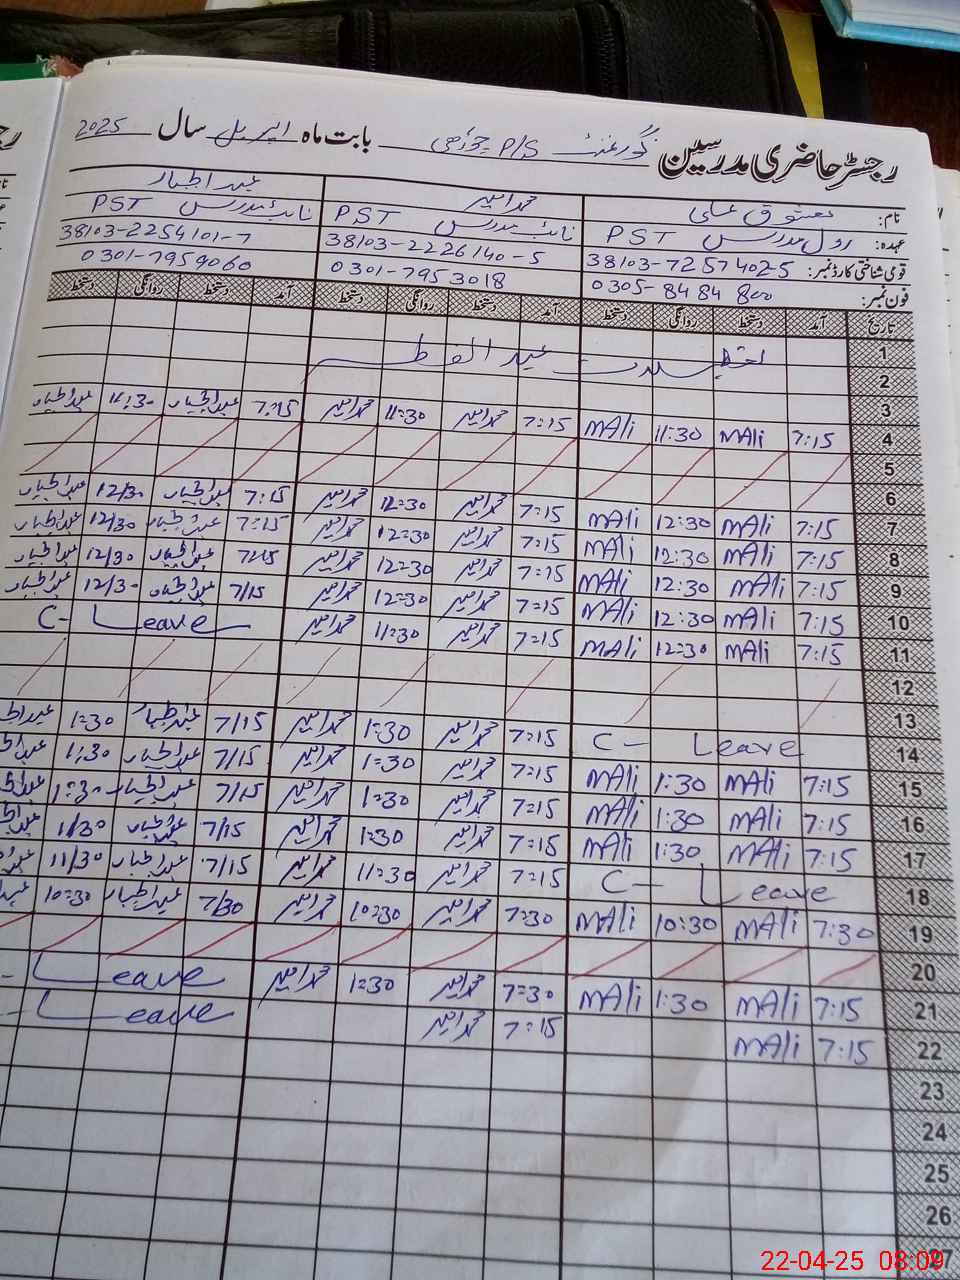 رجسٹر حاضری مدرسین گورنمنٹ P/S بابت ماہ اپریل سال 2025
نام: معشوق علی محمد امیر عبدالجبار
عہدہ: رول مدرس PST نائب مدرس PST نائب مدرس PST
قومی شناختی کارڈ نمبر: 38103-7257402-5 38103-2226140-5 38103-2254101-7
فون نمبر: 0305-8484800 0301-7953018 0301-7959060
تاریخ آمد دستخط روانگی دستخط آمد دستخط روانگی دستخط آمد دستخط روانگی دستخط
1 عید الفطر
2
3
4 7:15 MAli 11:30 MAli 7:15 محمد امیر 11:30 محمد امیر 7:15 عبدالجبار 11:30 عبدالجبار
5
6
7 7:15 MAli 12:30 MAli 7:15 محمد امیر 12:30 محمد امیر 7:15 عبدالجبار 12/30 عبدالجبار
8 7:15 MAli 12:30 MAli 7:15 محمد امیر 12:30 محمد امیر 7:15 عبدالجبار 12/30 عبدالجبار
9 7:15 MAli 12:30 MAli 7:15 محمد امیر 12:30 محمد امیر 7:15 عبدالجبار 12/30 عبدالجبار
10 7:15 MAli 12:30 MAli 7:15 محمد امیر 12:30 محمد امیر 7/15 عبدالجبار 12/30 عبدالجبار
11 7:15 MAli 12:30 MAli 7:15 محمد امیر 11:30 محمد امیر C- Leave
12
13
14 C- Leave 7:15 محمد امیر 1:30 محمد امیر 7/15 عبدالجبار 1:30
15 7:15 MAli 1:30 MAli 7:15 محمد امیر 1:30 محمد امیر 7/15 عبدالجبار 1:30
16 7:15 MAli 1:30 MAli 7:15 محمد امیر 1:30 محمد امیر 7/15 عبدالجبار 1:30
17 7:15 MAli 1:30 MAli 7:15 محمد امیر 1:30 محمد امیر 7/15 عبدالجبار 1/30
18 C- Leave 7:15 محمد امیر 11:30 محمد امیر 7/15 عبدالجبار 11/30
19 7:30 MAli 10:30 MAli 7:30 محمد امیر 10:30 محمد امیر 7/30 عبدالجبار 10:30
20
21 7:15 MAli 1:30 MAli 7:30 محمد امیر 1:30 محمد امیر - Leave
22 7:15 MAli 7:15 محمد امیر - Leave
23
24
25
26
27
22-04-25 08:09